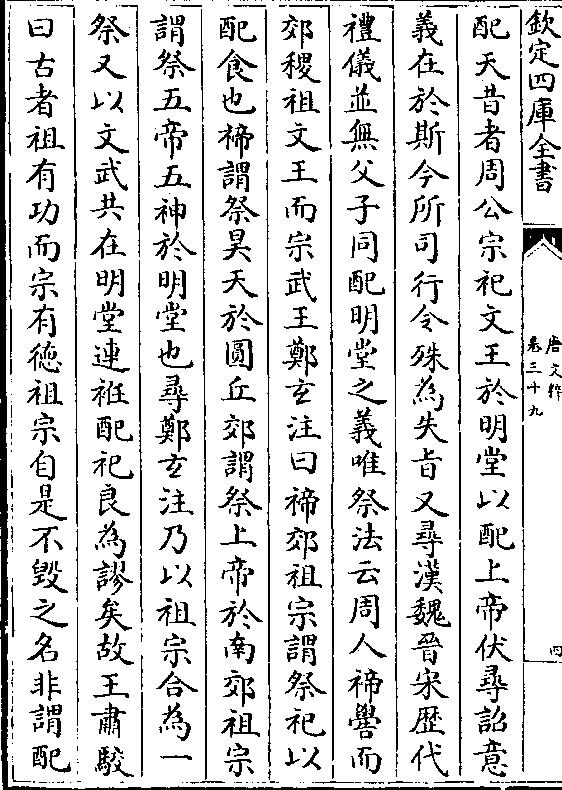 欽定四庫全書
唐文粹
卷三十九
四
配天昔者周公宗祀文王於明堂以配上帝伏尋詔意
義在於斯今所司行令殊為失旨又尋漢魏晉宋歴代
禮儀並無父子同配明堂之義唯祭法云周人禘嚳而
郊稷祖文王而宗武王鄭玄注曰禘郊祖宗謂祭祀以
配食也禘謂祭昊天於圓丘郊謂祭上帝於南郊祖宗
謂祭五帝五神於明堂也尋鄭玄注乃以祖宗合為一
祭又以文武共在明堂連袵配祀良為謬矣故王肅駮
曰古者祖有功而宗有徳祖宗自是不毀之名非謂配